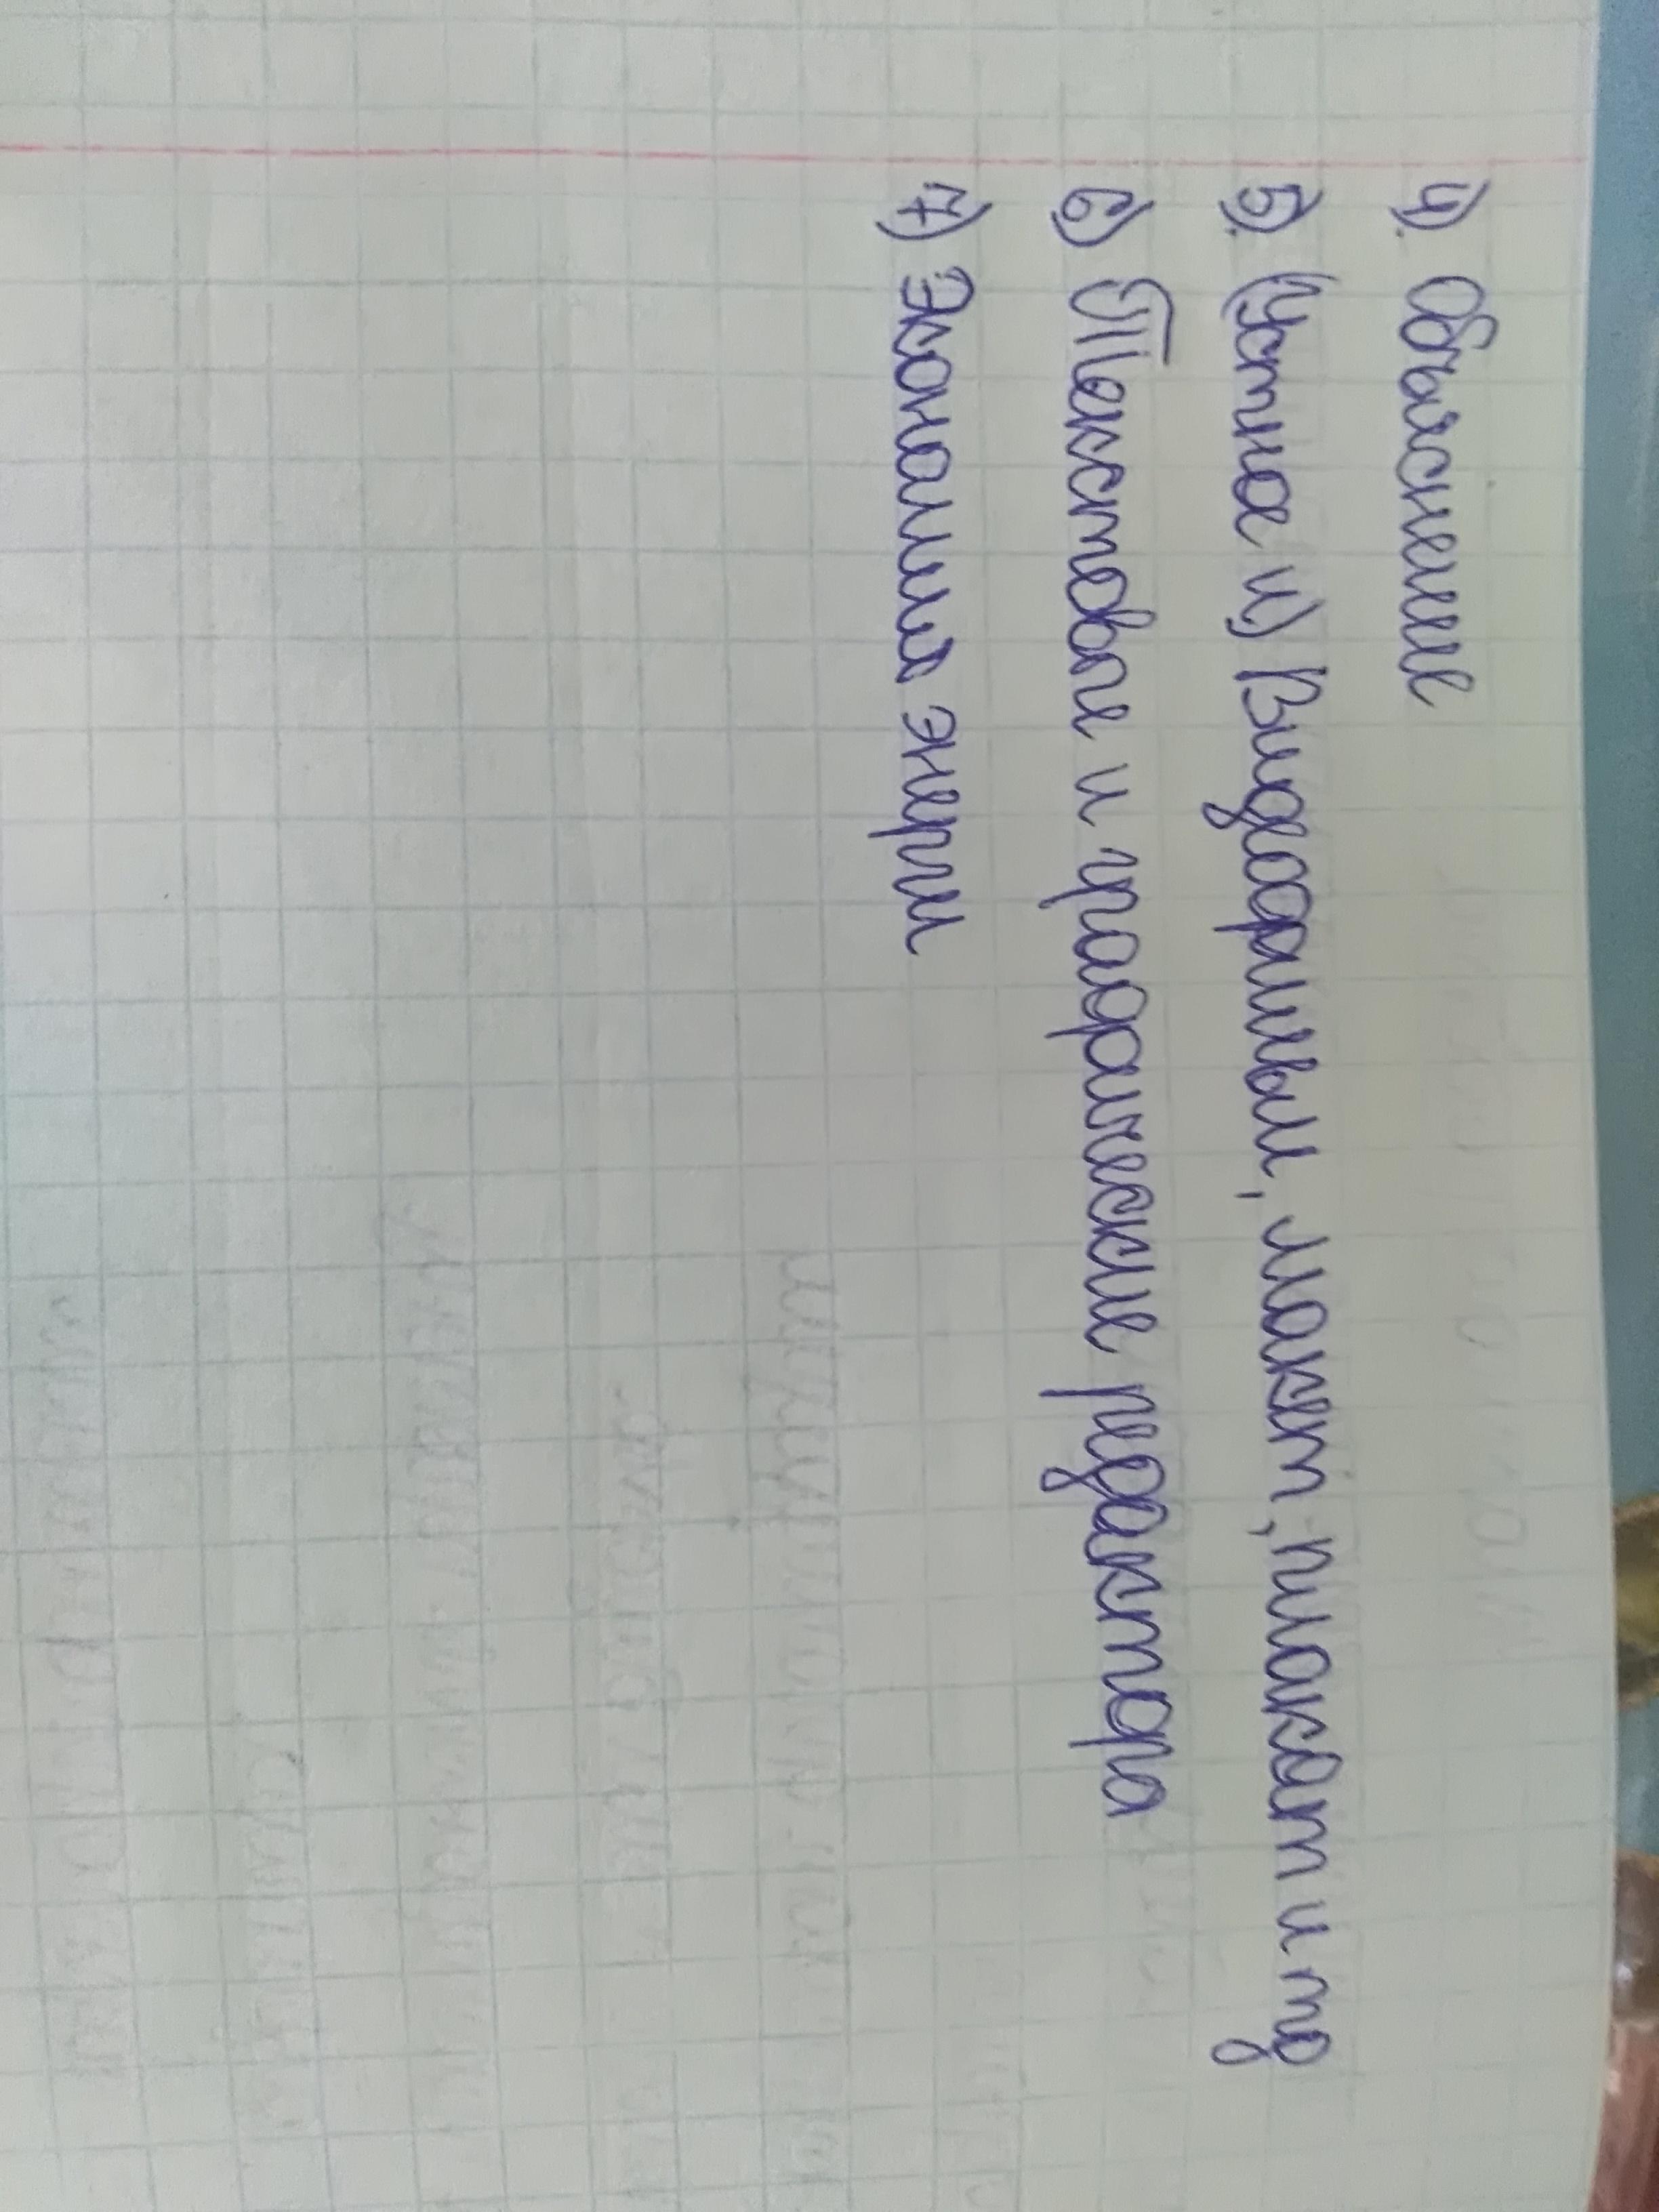 4). Объяснение
5). (Устное и) Видеофильм, макет, плакат и тд
6) Текстовые и графические редактора
7) Экономия энергии